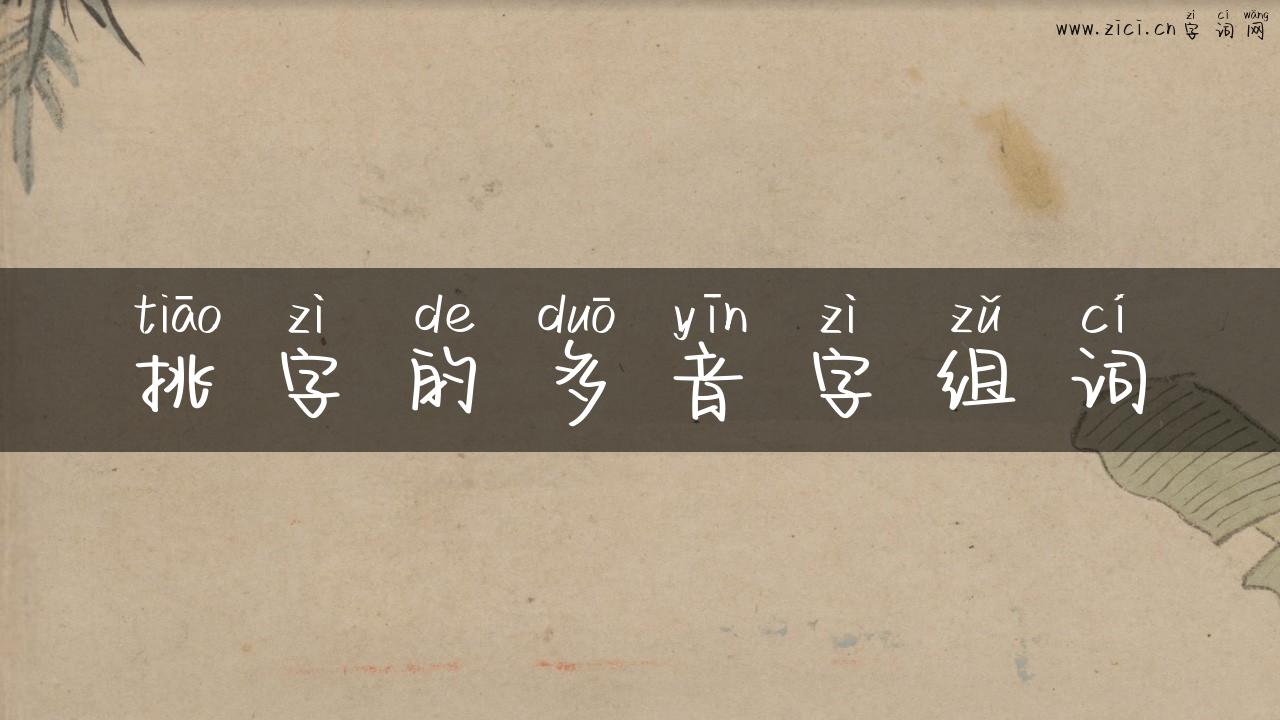 zì cí wǎng
www.zici.cn 字词网
tiāo zì de duō yīn zì zǔ cí
挑字的多音字组词